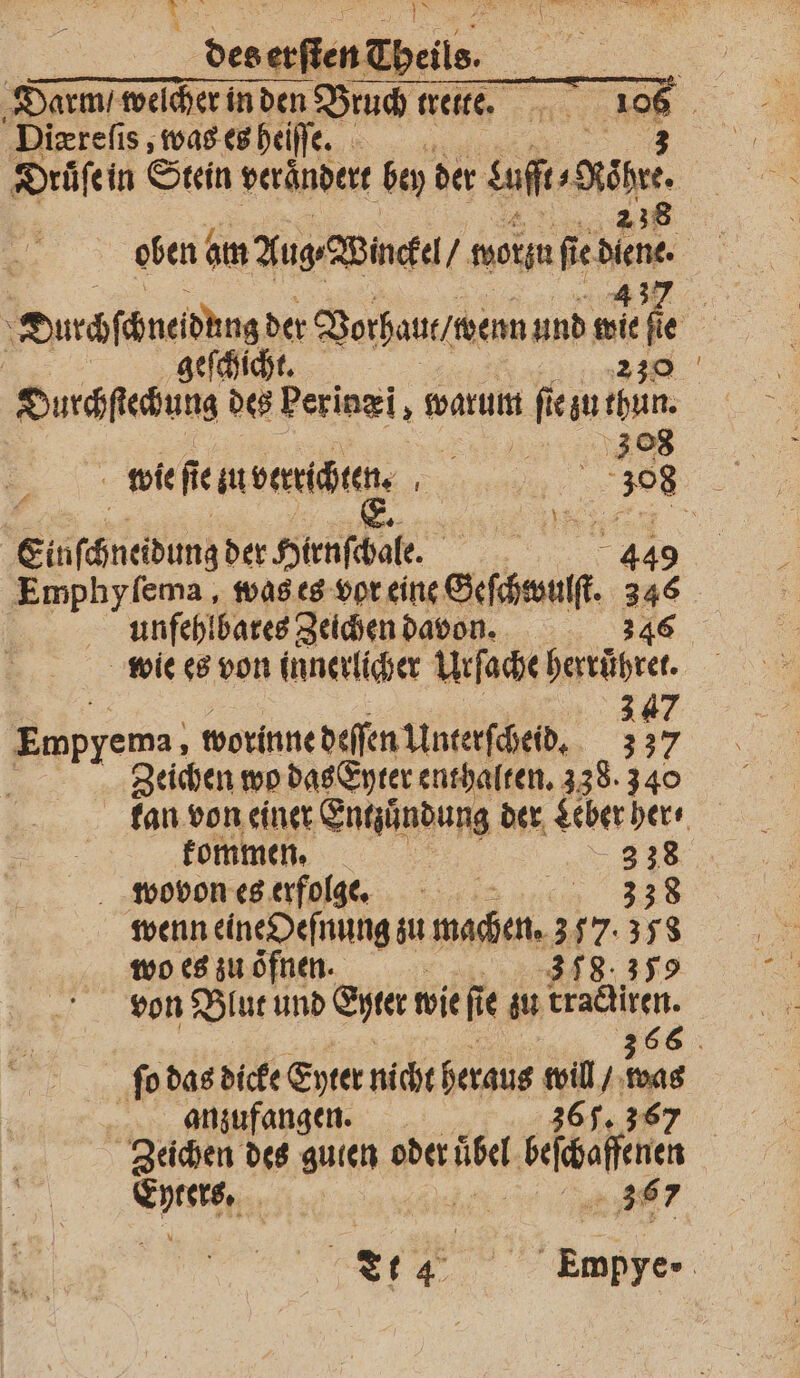 des erſten Theils.
Darm/ welcher in den Bruch trette. 106
Diæreſis, was es heiſſe. 3
Drůſe in Stein veråndert bey der Lufft⸗Rőhre.
238
oben am Aug⸗Winckel/ worzu ſie diene.
437
Durchſchneidung der Vorhaut/wenn und wie ſie
geſchicht. 230
Durchſtechung des Perinæi, warum ſie zu thun.
308
wie ſie zu verrichten. 308
E.
Einſchneidung der Hirnſchale. 449
Emphyſema, was es vor eine Geſchwulſt. 346
unfehlbares Zeichen davon. 346
wie es von innerlicher Urſache herrůhret.
347
Empyema, worinne deſſen Unterſcheid. 337
Zeichen wo das Eyter enthalten. 338. 340
kan von einer Entzůndung der Leber her⸗
kommen. 338
wovon es erfolge. 338
wenn eine Oefnung zu machen. 357. 358
wo es zu őfnen. 358. 359
von Blut und Eyter wie ſie zu tractiren.
366
ſo das dicke Eyter nicht heraus will / was
anzufangen. 365. 367
Zeichen des guten oder ůbel beſchaffenen
Eyters. 367
Tt 4 Empye⸗